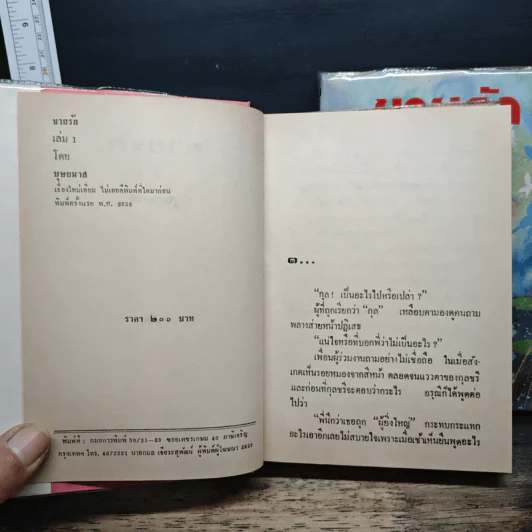 ขายรัก
เล่ม 1
โดย
บุษยมาส
เรื่องใหม่เอี่ยม ไม่เคยตีพิมพ์ที่ใดมาก่อน
พิมพ์ครั้งแรก พ.ศ.
ราคา ๒๐๐ บาท
พิมพ์ที่ : กรุงเทพฯ โทร.
๑...
“กุล ! เป็นอะไรไปหรือเปล่า ?”
ผู้ที่ถูกเรียกว่า “กุล” เหลือบตามองดูคนถาม
พลางส่ายหน้าปฏิเสธ
“แน่ใจหรือที่บอกพี่ว่าไม่เป็นอะไร ?”
เพื่อนผู้ร่วมงานถามอย่างไม่เชื่อถือ ในเมื่อสัง-
เกตเห็นรอยหมองจากสีหน้า ตลอดจนแววตาของกุลชรี
และก่อนที่กุลชรีจะตอบว่ากระไร อรุณีก็ได้พูดต่อ
ไปว่า
“พี่นึกว่าเธอถูก “ผู้ยิ่งใหญ่” กระทบกระแทก
อะไรเอาอีกเลยไม่สบายใจเพราะเมื่อเช้าเห็นยืนพูดอะไร
ขายรัก